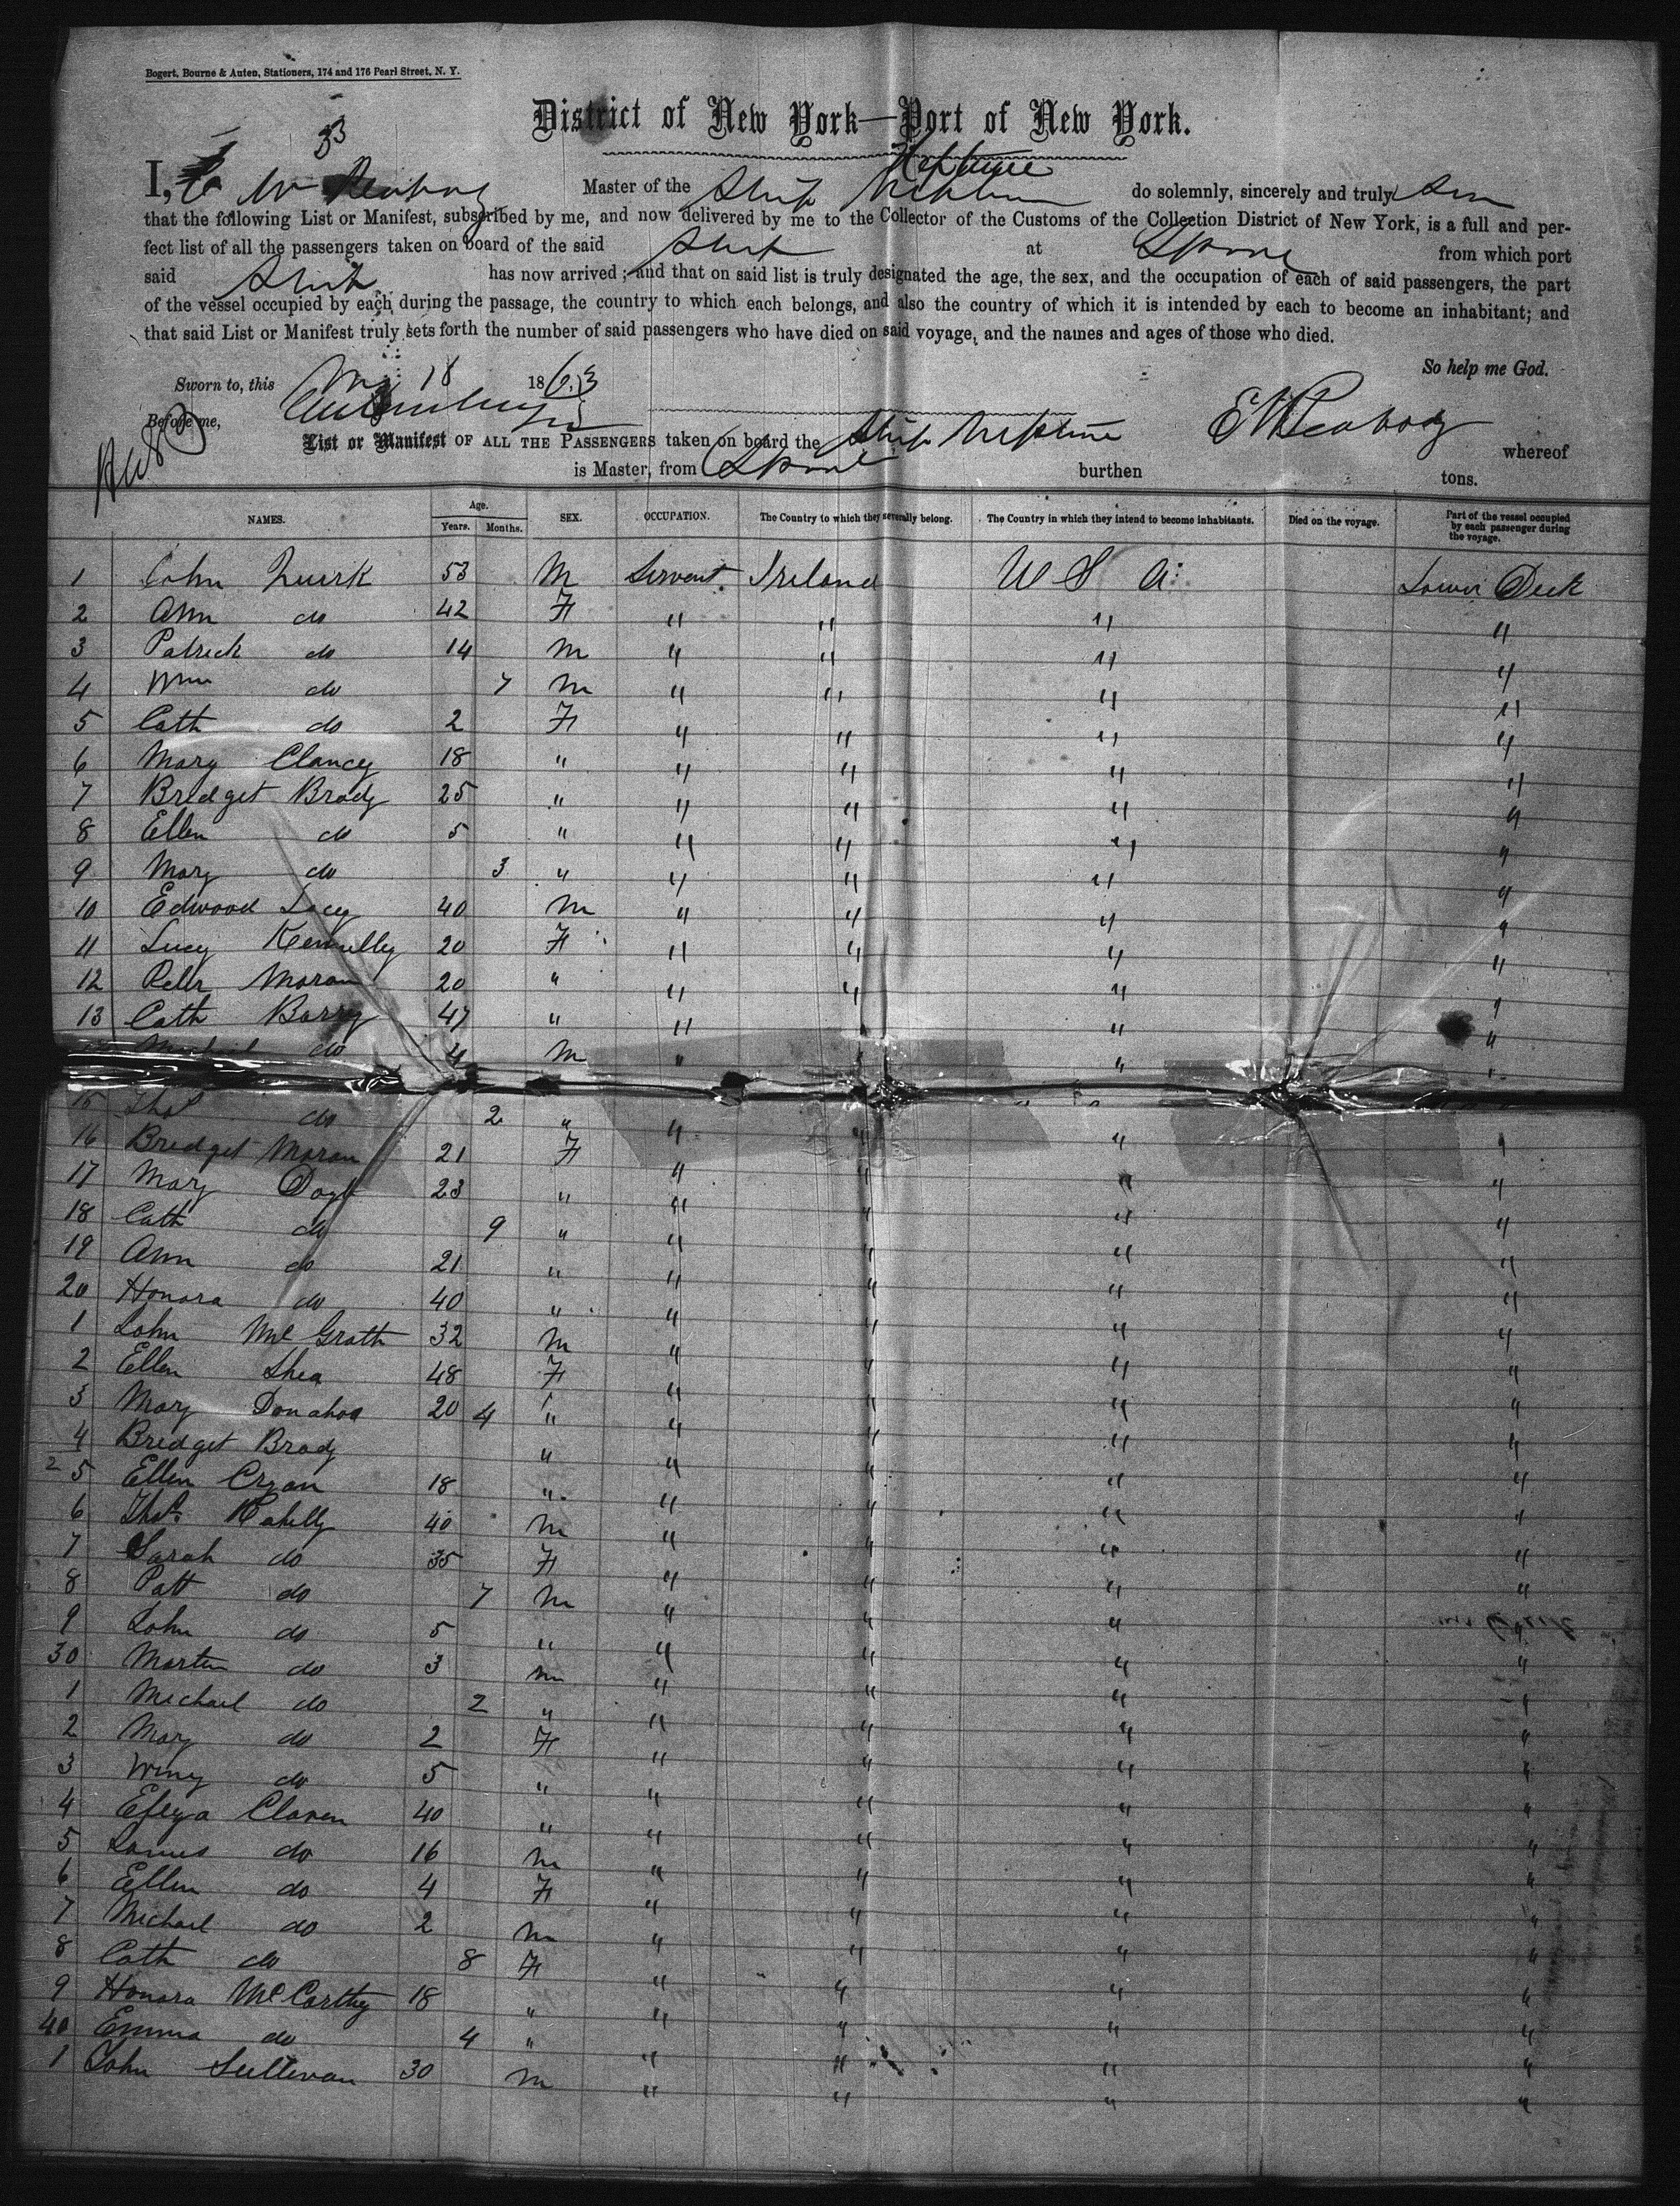 Bogert, Bourne & Auten, Stationers, 174 and 176 Pearl Street, N. Y.
33
District of New York—Port of New York.
Neptune
I, E W Peabody Master of the Ship Neptune do solemnly, sincerely and truly
that the following List or Manifest, subscribed by me, and now delivered by me to the Collector of the Customs of the Collection District of New York, is a full and per-
fect list of all the passengers taken on board of the said Ship at Lpool from which port
said Ship has now arrived; and that on said list is truly designated the age, the sex, and the occupation of each of said passengers, the part
of the vessel occupied by each during the passage, the country to which each belongs, and also the country of which it is intended by each to become an inhabitant; and
that said List or Manifest truly sets forth the number of said passengers who have died on said voyage, and the names and ages of those who died.
So help me God.
Sworn to, this May 18 1863
Before me,
E W Peabody
List or Manifest OF ALL THE PASSENGERS taken on board the Ship Neptune whereof
is Master, from Lpool burthen tons.
NAMES. Age. Years. Months. SEX. OCCUPATION. The Country to which they severally belong. The Country in which they intend to become inhabitants. Died on the voyage. Part of the vessel occupied by each passenger during the voyage.
1 John Quirk 53 M Servant Ireland U S A Lower Deck
2 Ann do 42 F " " " "
3 Patrick do 14 M " " " "
4 Wm do 7 M " " " "
5 Cath do 2 F " " " "
6 Mary Clancy 18 " " " " "
7 Bridget Brady 25 " " " " "
8 Ellen do 5 " " " " "
9 Mary do 3 " " " " "
10 Edward Lacy 40 M " " " "
11 Lucy Kennelly 20 F " " " "
12 Moran 20 " " " " "
13 Cath Barry 47 " " " " "
Michael do 4 M " " "
15 Thos do 2 " " " " "
16 Bridget Moran 21 F " " " "
17 Mary Doyle 23 " " " " "
18 Cath do 9 " " " " "
19 Ann do 21 " " " " "
20 Honora do 40 " " " " "
1 John McGrath 32 M " " " "
2 Ellen Shea 48 F " " " "
3 Mary Donahoe 20 4 " " " " "
4 Bridget Brady " " " " "
25 Ellen Cryan 18 " " " " "
6 Thos Rahilly 40 M " " " "
7 Sarah do 35 F " " " "
8 Patt do 7 M " " " "
9 John do 5 " " " " "
30 Martin do 3 M " " " "
1 Michael do 2 " " " " "
2 Mary do 2 F " " " "
3 Winy do 5 " " " " "
4 Claren 40 " " " " "
5 James do 16 M " " " "
6 Ellen do 4 F " " " "
7 Michael do 2 M " " " "
8 Cath do 8 F " " " "
9 Honora McCarthy 18 " " " " "
40 Emma do 4 " " " " "
1 John Sullivan 30 M " " " "